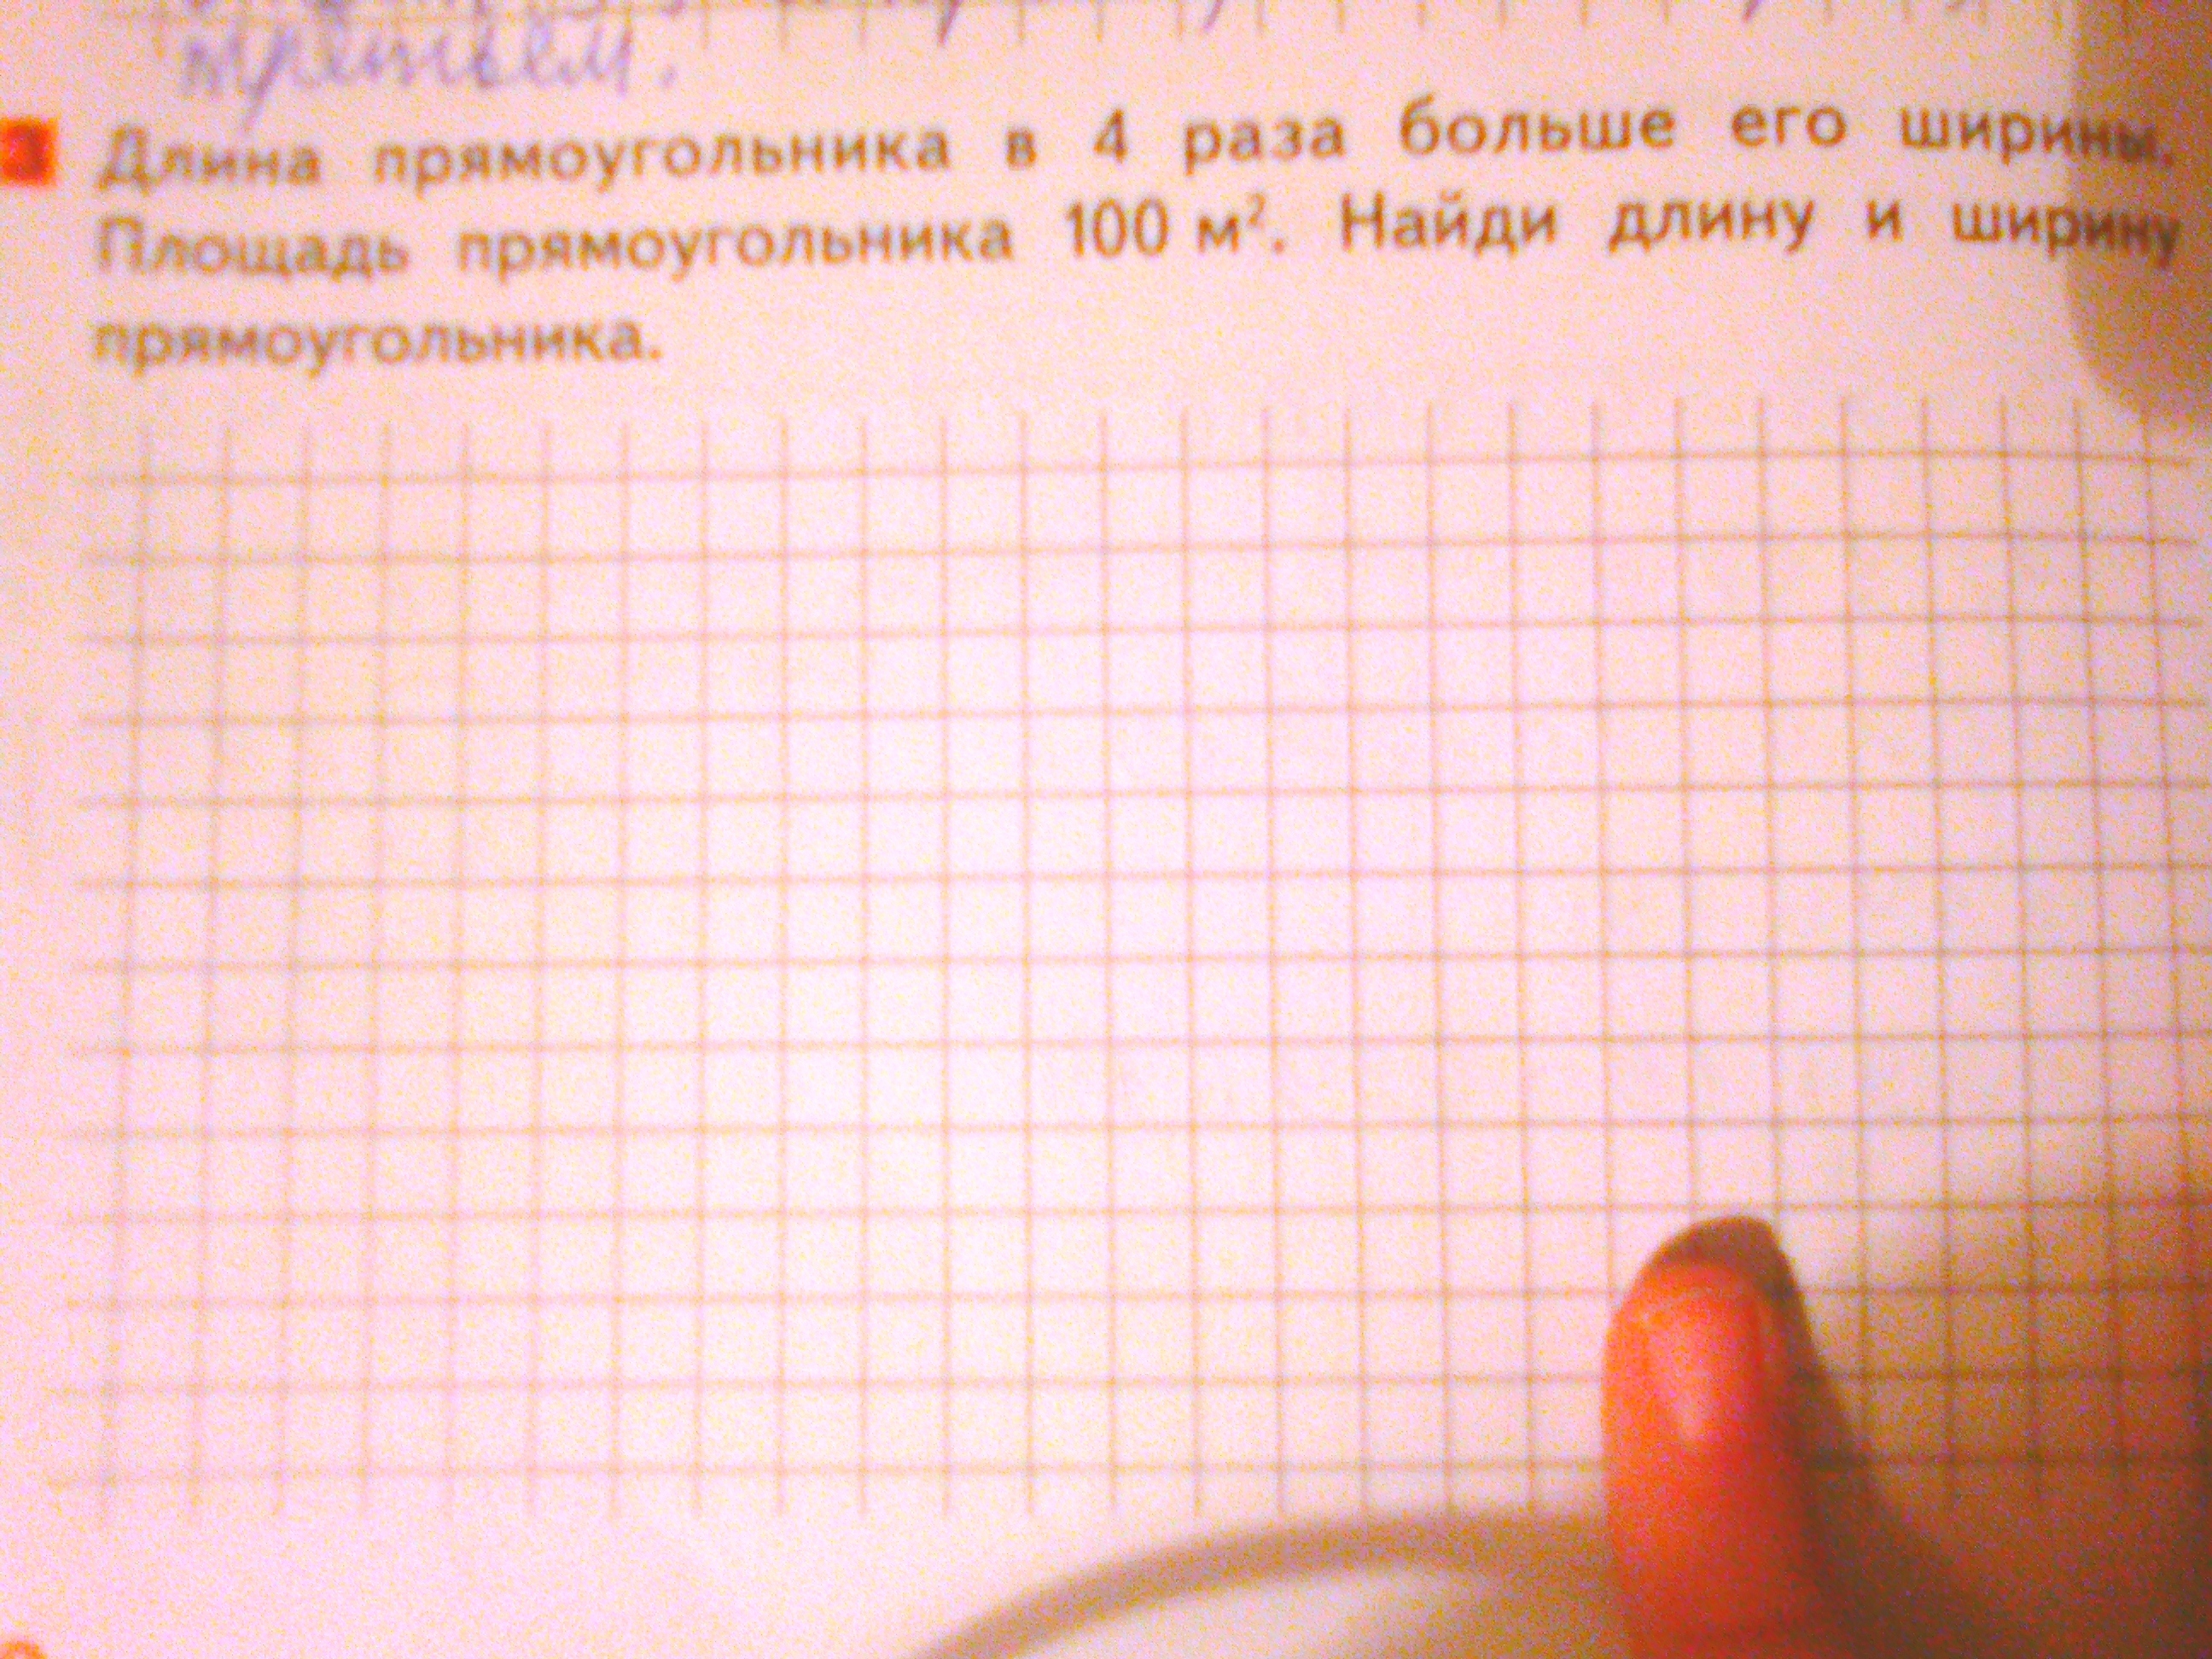 третьем.
3 Длина прямоугольника в 4 раза больше его ширины.
Площадь прямоугольника 100 м². Найди длину и ширину
прямоугольника.